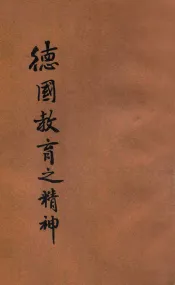 德國教育之精神